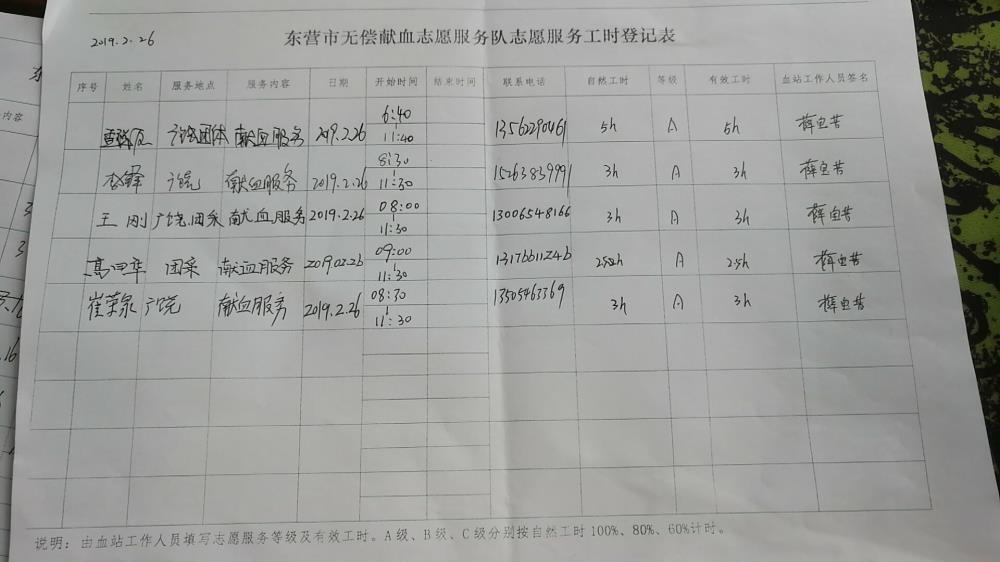 2019.2.26
东营市无偿献血志愿服务队志愿服务工时登记表
序号 姓名 服务地点 服务内容 日期 开始时间 结束时间 联系电话 自然工时 等级 有效工时 血站工作人员签名
广饶团体 献血服务 2019.2.26 6:40 11:40 13562290461 5h A 5h
广饶 献血服务 2019.2.26 8:30 11:30 15263839991 3h A 3h
王刚 广饶团采 献血服务 2019.2.26 08:00 11:30 13006548166 3h A 3h
团采 献血服务 2019.02.26 09:00 11:30 A 2.5h
崔荣泉 广饶 献血服务 2019.2.26 08:30 11:30 13505463369 3h A 3h
说明：由血站工作人员填写志愿服务等级及有效工时。A级、B级、C级分别按自然工时100%、80%、60%计时。
内容